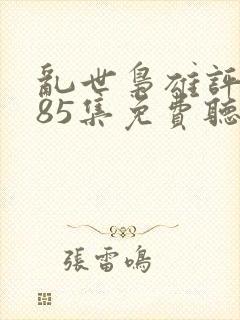 亂世梟雄評
85集免費聽
張雷鳴